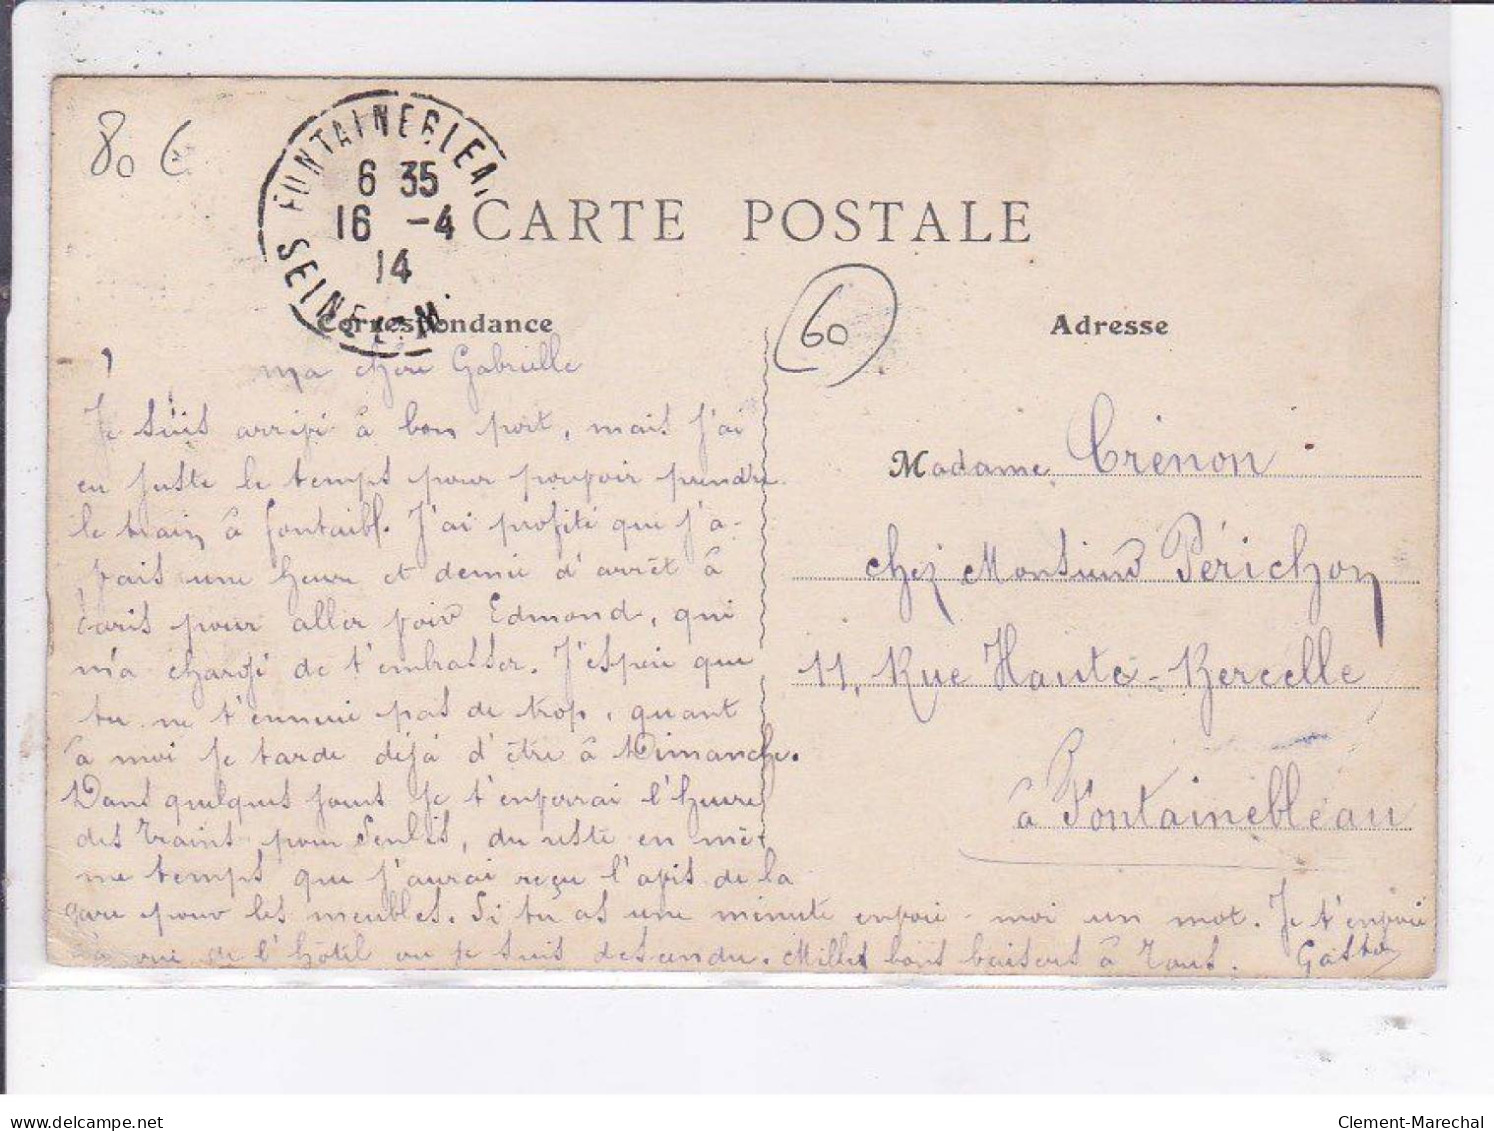 80 €
FONTAINEBLEA
6 35
16 -4
14
SEINE-&-M.
CARTE POSTALE
60
Correspondance
Adresse
ma chère Gabrielle
Je suis arrivé à bon port, mais j'ai
eu juste le temps pour pouvoir prendre
le train à fontaibl. J'ai profité que j'a-
vais une heure et demie d'arrêt à
Paris pour aller voir Edmond, qui
m'a chargé de t'embrasser. J'espère que
tu ne t'ennuie pas de trop, quant
à moi je tarde déjà d'être à Dimanche.
Dans quelques jours je t'enverrai l'heure
des trains pour Senlis, du reste en mê-
me temps que j'aurai reçu l'avis de la
gare pour les meubles. Si tu as une minute envoie-moi un mot. Je t'envoie
la vue de l'hôtel ou je suis descendu. Milles bons baisers à tous. Gaston
Madame Crénon
chez Monsieur Périchon
11, Rue Haute-Bercelle
à Fontainebleau
delcampe.net
Clement-Marechal